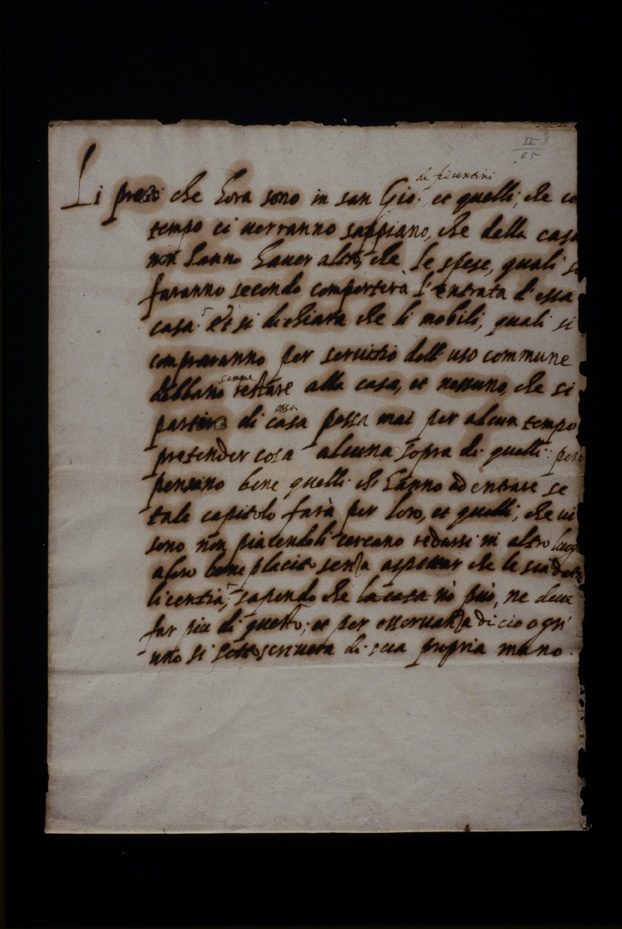 II
65
de fiorentini
Li preti che hora sono in san Gio. et quelli, che co
tempo ci verranno sappiano, che della casa
non hanno haver altro, che le spese, quali si
faranno secondo comporterà l'entrata d'essa
casa. Et si dichiara che li mobili, quali si
compraranno per servitio dell'uso commune
sempre
debbano restare alla casa, et nessuno, che si
essa
partirà di casa possa mai per alcun tempo
pretender cosa alcuna sopra di quelli: però
pensino bene quelli ch'hanno ad entrare se
tale capitolo farà per loro, et quelli, che vi
sono non piacendoli cercano ridursi in altro luogo
a loro beneplacito senza aspettar che le sia data
licentia, sapendo che la casa nō può, ne deve
far più di questo, et per osservanza di ciò ogn'
uno si sottoscriverà di sua propria mano.